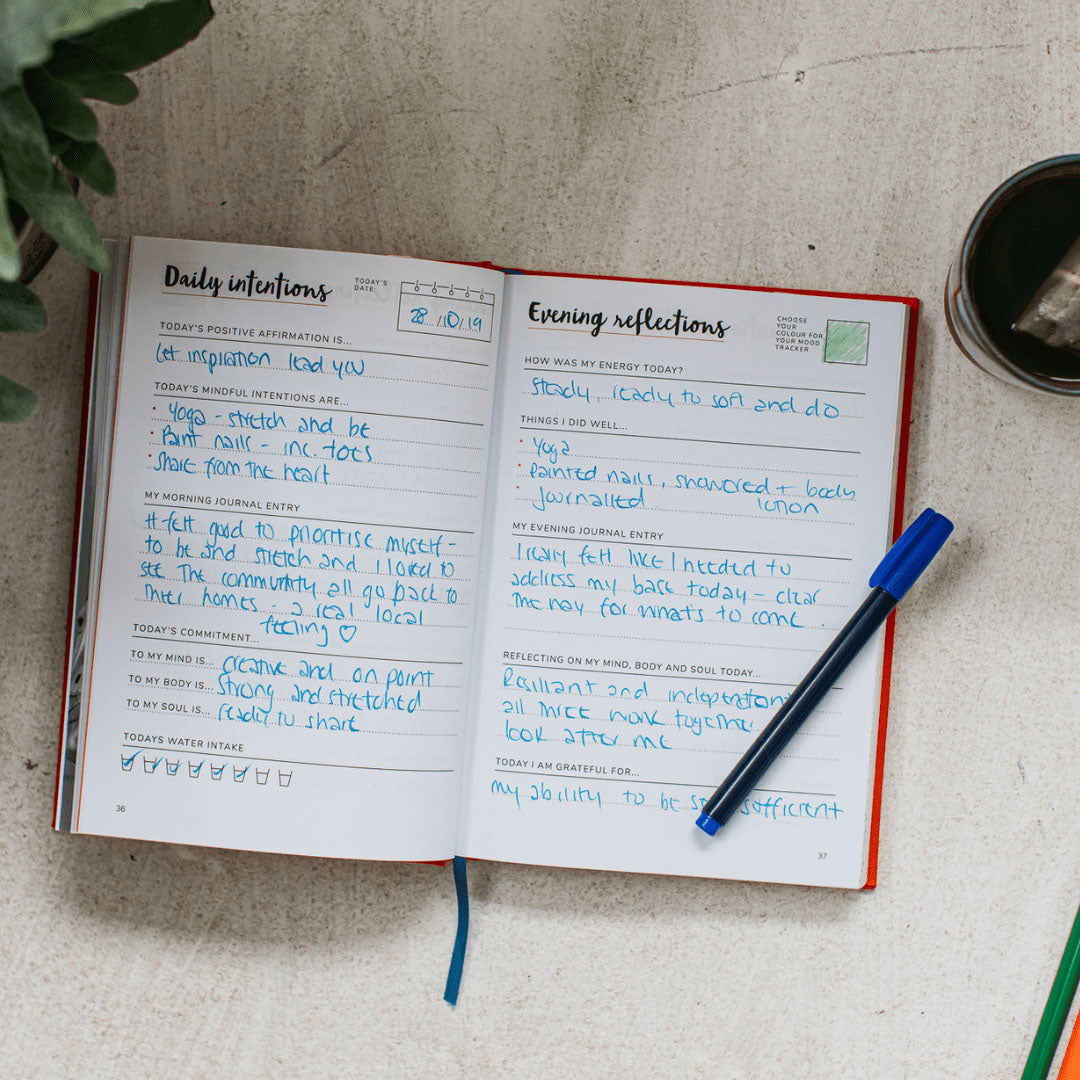 Daily intentions
TODAY'S
DATE:
28 / 10 / 19
TODAY'S POSITIVE AFFIRMATION IS...
Let inspiration lead you
TODAY'S MINDFUL INTENTIONS ARE...
• Yoga - stretch and be
• Paint nails - inc. toes
• Share from the heart
MY MORNING JOURNAL ENTRY
It felt good to prioritise myself -
to be and stretch and I loved to
see the community all go back to
their homes - a real local
feeling ♡
TODAY'S COMMITMENT...
TO MY MIND IS... creative and on point
TO MY BODY IS... Strong and stretched
TO MY SOUL IS... ready to share
TODAYS WATER INTAKE
36
Evening reflections
CHOOSE
YOUR
COLOUR FOR
YOUR MOOD
TRACKER
HOW WAS MY ENERGY TODAY?
Steady, ready to soft and do
THINGS I DID WELL...
• Yoga
• Painted nails, showered + body
lotion
• Journalled
MY EVENING JOURNAL ENTRY
I really felt like I needed to
address my base today - clear
the way for whats to come.
REFLECTING ON MY MIND, BODY AND SOUL TODAY...
Resiliant and independant
all three work together
look after me
TODAY I AM GRATEFUL FOR...
my ability to be sufficient
37